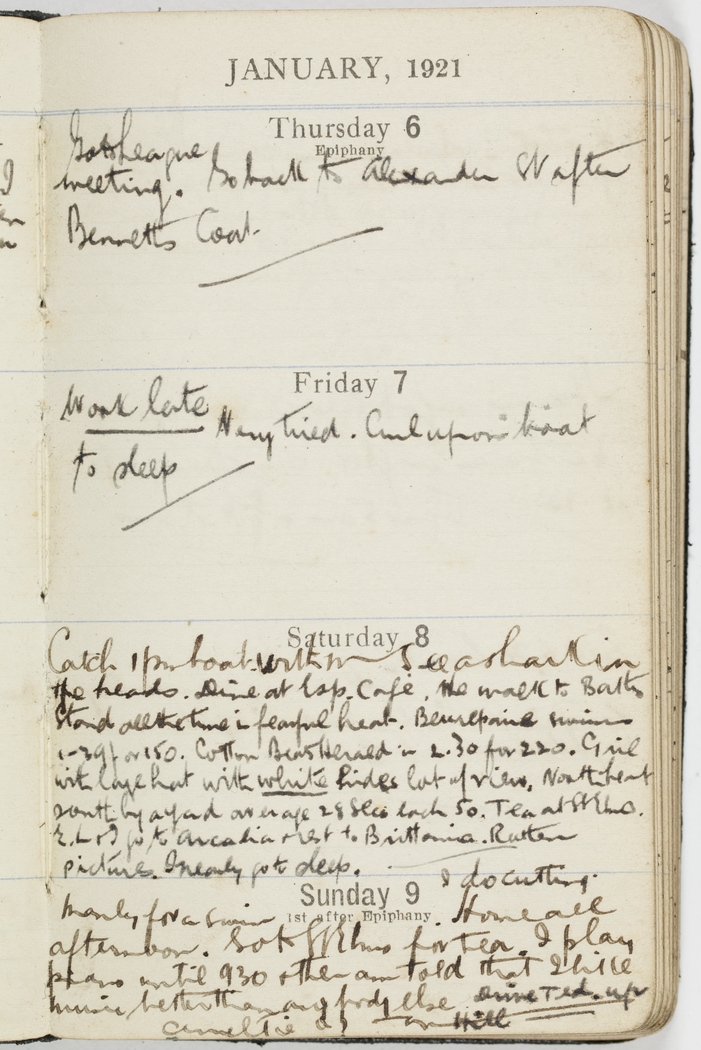 JANUARY, 1921
Thursday 6
Epiphany
Go to League
meeting. Go back to Alexander St after
Bennetts Coat
Friday 7
Work late Very tired. Curl up on boat
to sleep
Saturday 8
Catch 1 pm boat with See a shark in
the heads. Dine at Café. We walk to Baths
Stand all the time in fearful heat. Beaurepaire swims
1-39 for 150. Cotton Beats Herald in 2.30 for 220. Girl
with large hat with white hides lot of view. North beat
south by a yard average 28 secs each 50. Tea at St Elmo.
& I go to Arcadia & rest to Brittania. Rotten
picture. I nearly go to sleep.
Sunday 9
I do cutting.
1st after Epiphany
Manly for a swim. Home all
afternoon. Go to St Elmo for tea. I play
piano until 930 & then am told that I like
music better than anybody else. Ted. up
Hill